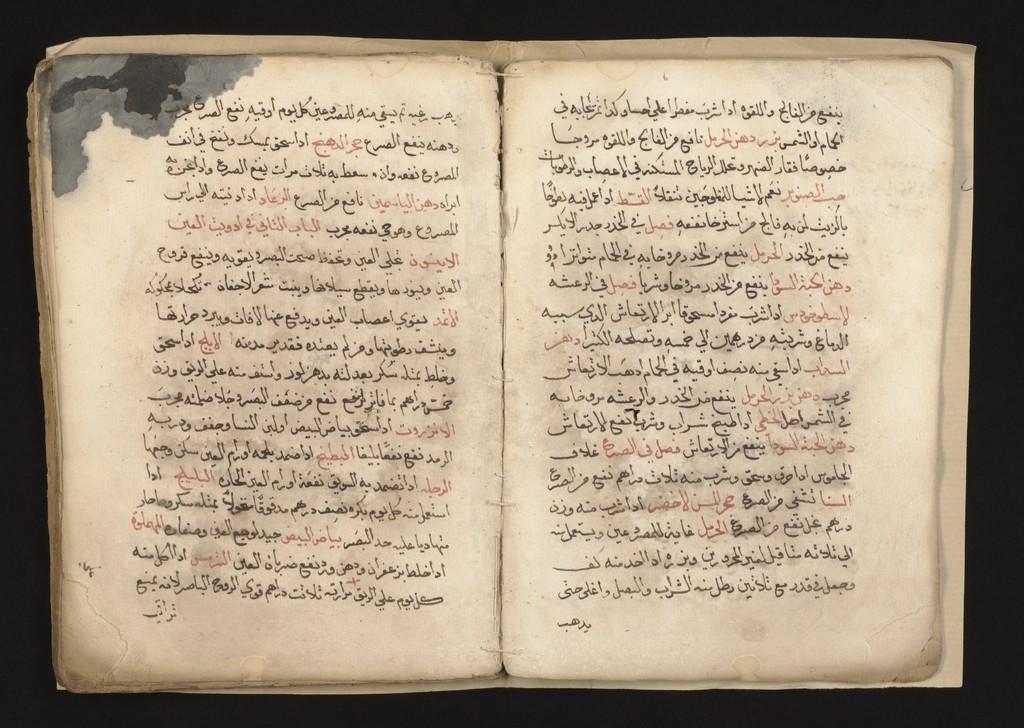 ينفع من الفالج واللقوة اذا شرب مفطرا علي احسا وكذا تمرخا به في
الحمام او الشمس بزر ودهن الحرمل نافع من الفالج واللقوة مروخا
خصوصا فقار الظهر وتحلل الرياح المستكنه في الاعصاب والرطوبات
حب الصنوبر نعم الاشيا للمفلوجين تنقلا القسط اذا عمل فيه لطوخا
بالزيت لمن به فالج من استرخا نفعه فصل في الخدر خدر الايل
ينفع من الخدر الحرمل ينفع من الخدر مروخا به في الحمام متواترا
دهن الحبة السودا ينفع من الخدر مروخا وشربا فصل في الرعشه
الاسطوخودس اذا شرب مفردا مسحوقا ابرا الارتعاش الذي سببه
الدماغ وشربته من درهمين الي خمسه وتصلحه الكثيرا دهن
السداب اذا سقي منه نصف اوقيه في الحمام ذهب الارتعاش
مجرب دهن بزر الحرمل ينفع من الخدر والرعشه مروخا به
في الشمس اصل الخطمي اذا طبخ شراب وشربا نفع الارتعاش
دهن الحبة السودا ينفع من الارتعاش فصل في الصرع غلاف
الجاموس اذا حرق وسحق وشرب منه ثلاث دراهم نفع من الصرع
السنا تشفي من الصرع حجر المسن الاخضر اذا شرب منه وزن
درهم بخل نفع من الصرع الحرمل غاية للمصروعين ويستعمل منه
الي ثلاثه مثاقيل لغير المحرورين وبزره اذا اخذ منه كف
وجعل في قدر مع ثلاثين رطل منه الشراب والبصل واغلي حتي
يذهب
يذهب ثم يسقي منه للمصروعين كل يوم اوقيه نفع الصرع مجرب
ودهنه ينفع الصرع حجر الدهنج اذا سحق بمسك ونفخ في انف
المصروع نفعه وان سعط به ثلاث مرات ينفع الصرع واذا
ابراه دهن الياسمين نافع من الصرع الرعاد اذا ادنيته الي راس
المصروع وهو حي نفعه مجرب الباب الثاني في ادوية العين
الابنوس يجلي العين ويحفظ صحت البصر ويقويه وينفع قروح
العين وبثورها ويقطع سيلانها وينبت شعر الاجفان تكحلا بمحكوكه
الاثمد يقوي اعصاب العين ويدفع عنها الافات ويبرد حرارتها
وينشف رطوبتها ومن لم يعتده فقد يرمد منه الاملج اذا سحق
وخلط بمثله سكر بعد لته بدهن لوز واستف منه علي الريق وزن
خمسة دراهم بما فاتر نفع من ضعف البصر وجلا ضيائه مجرب
الانزروت اذا سحق بياض البيض او لبن النسا وجفف وذر به
الرمد نفع نفعا بليغا البطيخ اذا ضمد بلحمه اورام العين سكن وجعها
الرجله اذا تضمد به السويق نفعت اورام العين الحارة البليلج اذا
استعمل منه كل يوم بكره نصف درهم مدقوقا منخولا بمثله سكر وصار
منها ديا عليه حد البصر بياض البيض جيد لوجع العين وصفاره المهملوق
اذا خلط بزعفران ودهن ورد نفع ضربان العين الترمس اذا اكل منه
كل يوم علي الريق مرارته ثلاثت دراهم قوي الروح الباصر لانه يمنع
تراقي